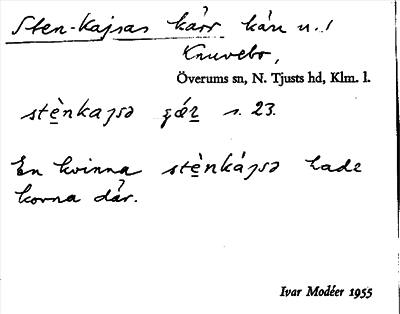 Sten-Kajsas kärr kärr n.!
Knuvebo,
Överums sn, N. Tjusts hd, Klm. l.
stènkajsə s. 23.
En kvinna stènkájsə hade
korna där.
Ivar Modéer 1955